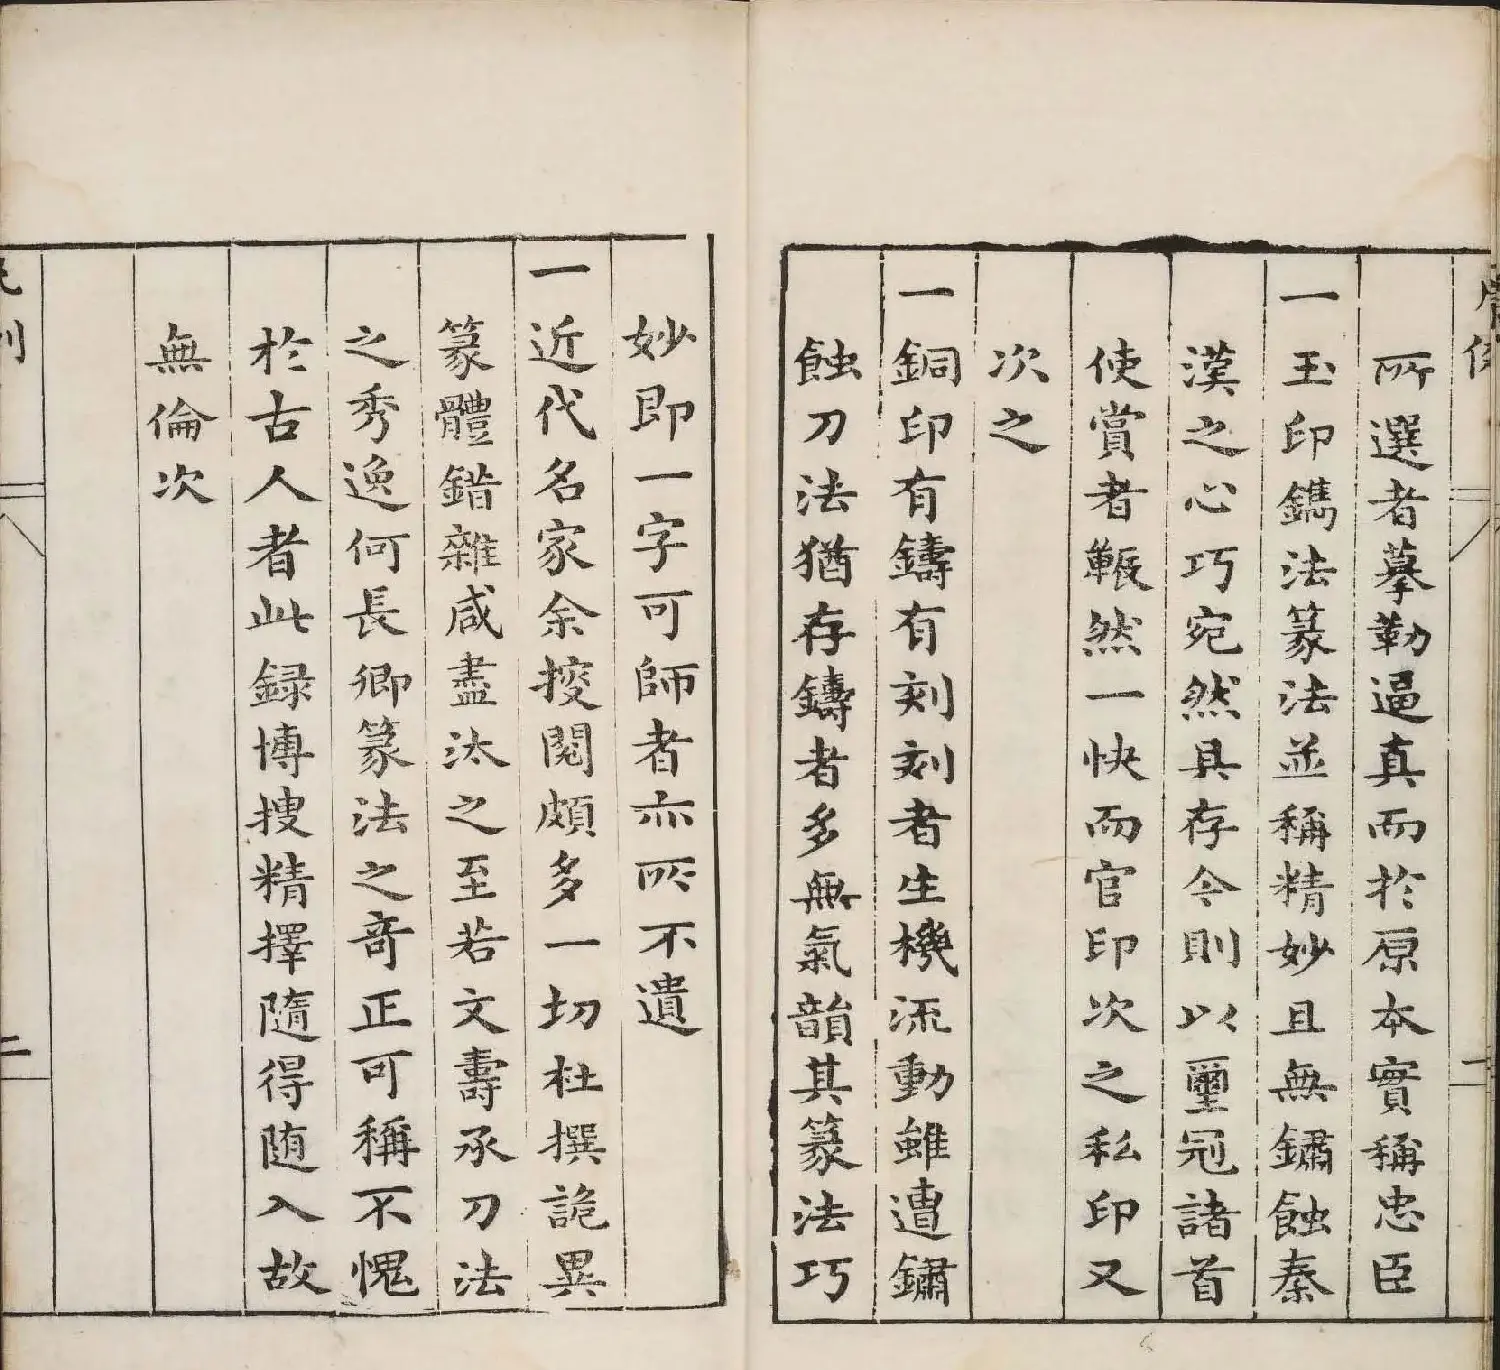 所選者摹勒逼真而於原本實稱忠臣
一玉印鐫法篆法並稱精妙且無鏽蝕秦
漢之心巧宛然具存令則以璽冠諸首
使賞者囅然一快而官印次之私印又
次之
一銅印有鑄有刻刻者生機流動雖遭鏽
蝕刀法猶存鑄者多無氣韻其篆法巧
妙即一字可師者亦所不遺
一近代名家余搜閱頗多一切杜撰詭異
篆體錯雜咸盡汰之至若文壽承刀法
之秀逸何長卿篆法之奇正可稱不愧
於古人者此録博搜精擇隨得随入故
無倫次